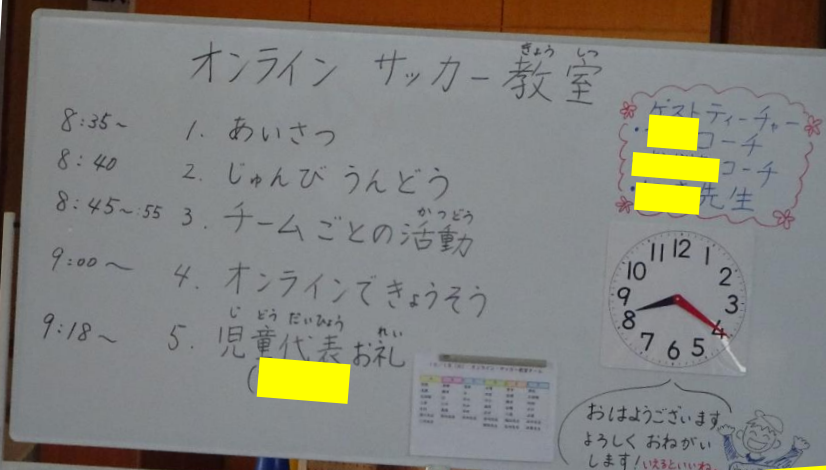 オンライン サッカー教室
きょう しつ
8:35~ 1. あいさつ
8:40 2. じゅんび うんどう
8:45~:55 3. チームごとの活動
かつどう
9:00~ 4. オンラインできょうそう
9:18~ 5. 児童代表お礼
じ どう だいひょう れい
(
ゲストティーチャー
・ コーチ
・ コーチ
・ 先生
12
1
2
3
4
5
6
7
8
9
10
11
おはようございます
よろしく おねがい
します!いえるといいね